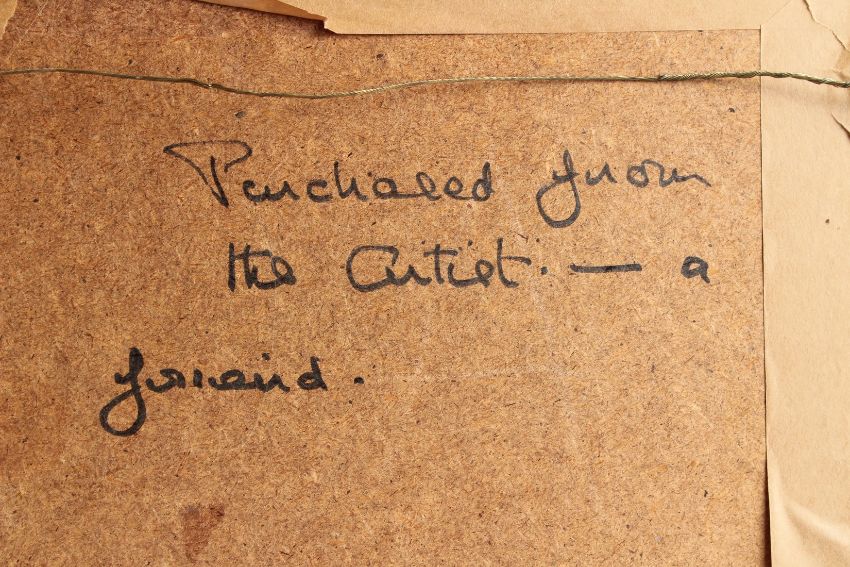 Purchased from
the Artist. — a
friend.